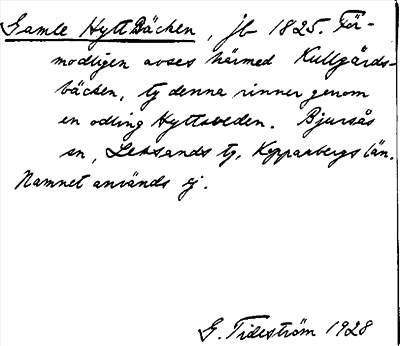 Gamle HyttBäcken, jb 1825. För-
modligen avses härmed Kullgårds-
bäcken, ty denna rinner genom
en odling Hyttsveden. Bjursås
sn, Leksands tg, Kopparbergs län.
Namnet används ej.
G. Tideström 1928